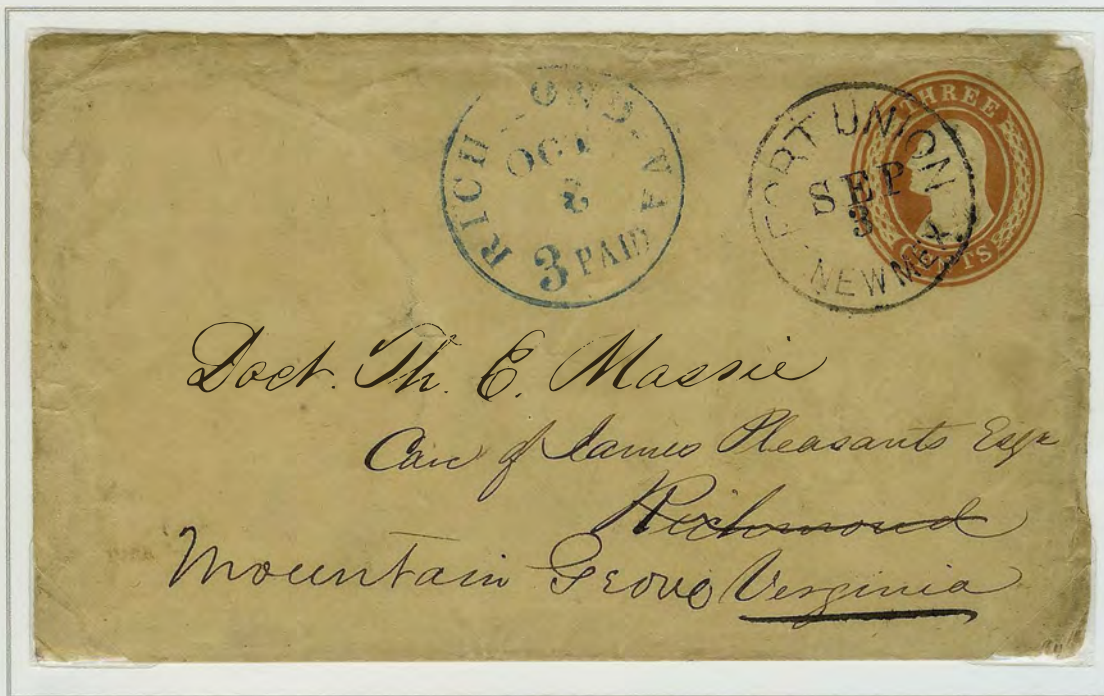 RICHMOND VA
OCT
8
3 PAID
FORT UNION
SEP
3
NEW MEX
THREE
CENTS
Doct. Th. E. Massie
Care of James Pleasants Esqr
Richmond
Mountain Grove Virginia